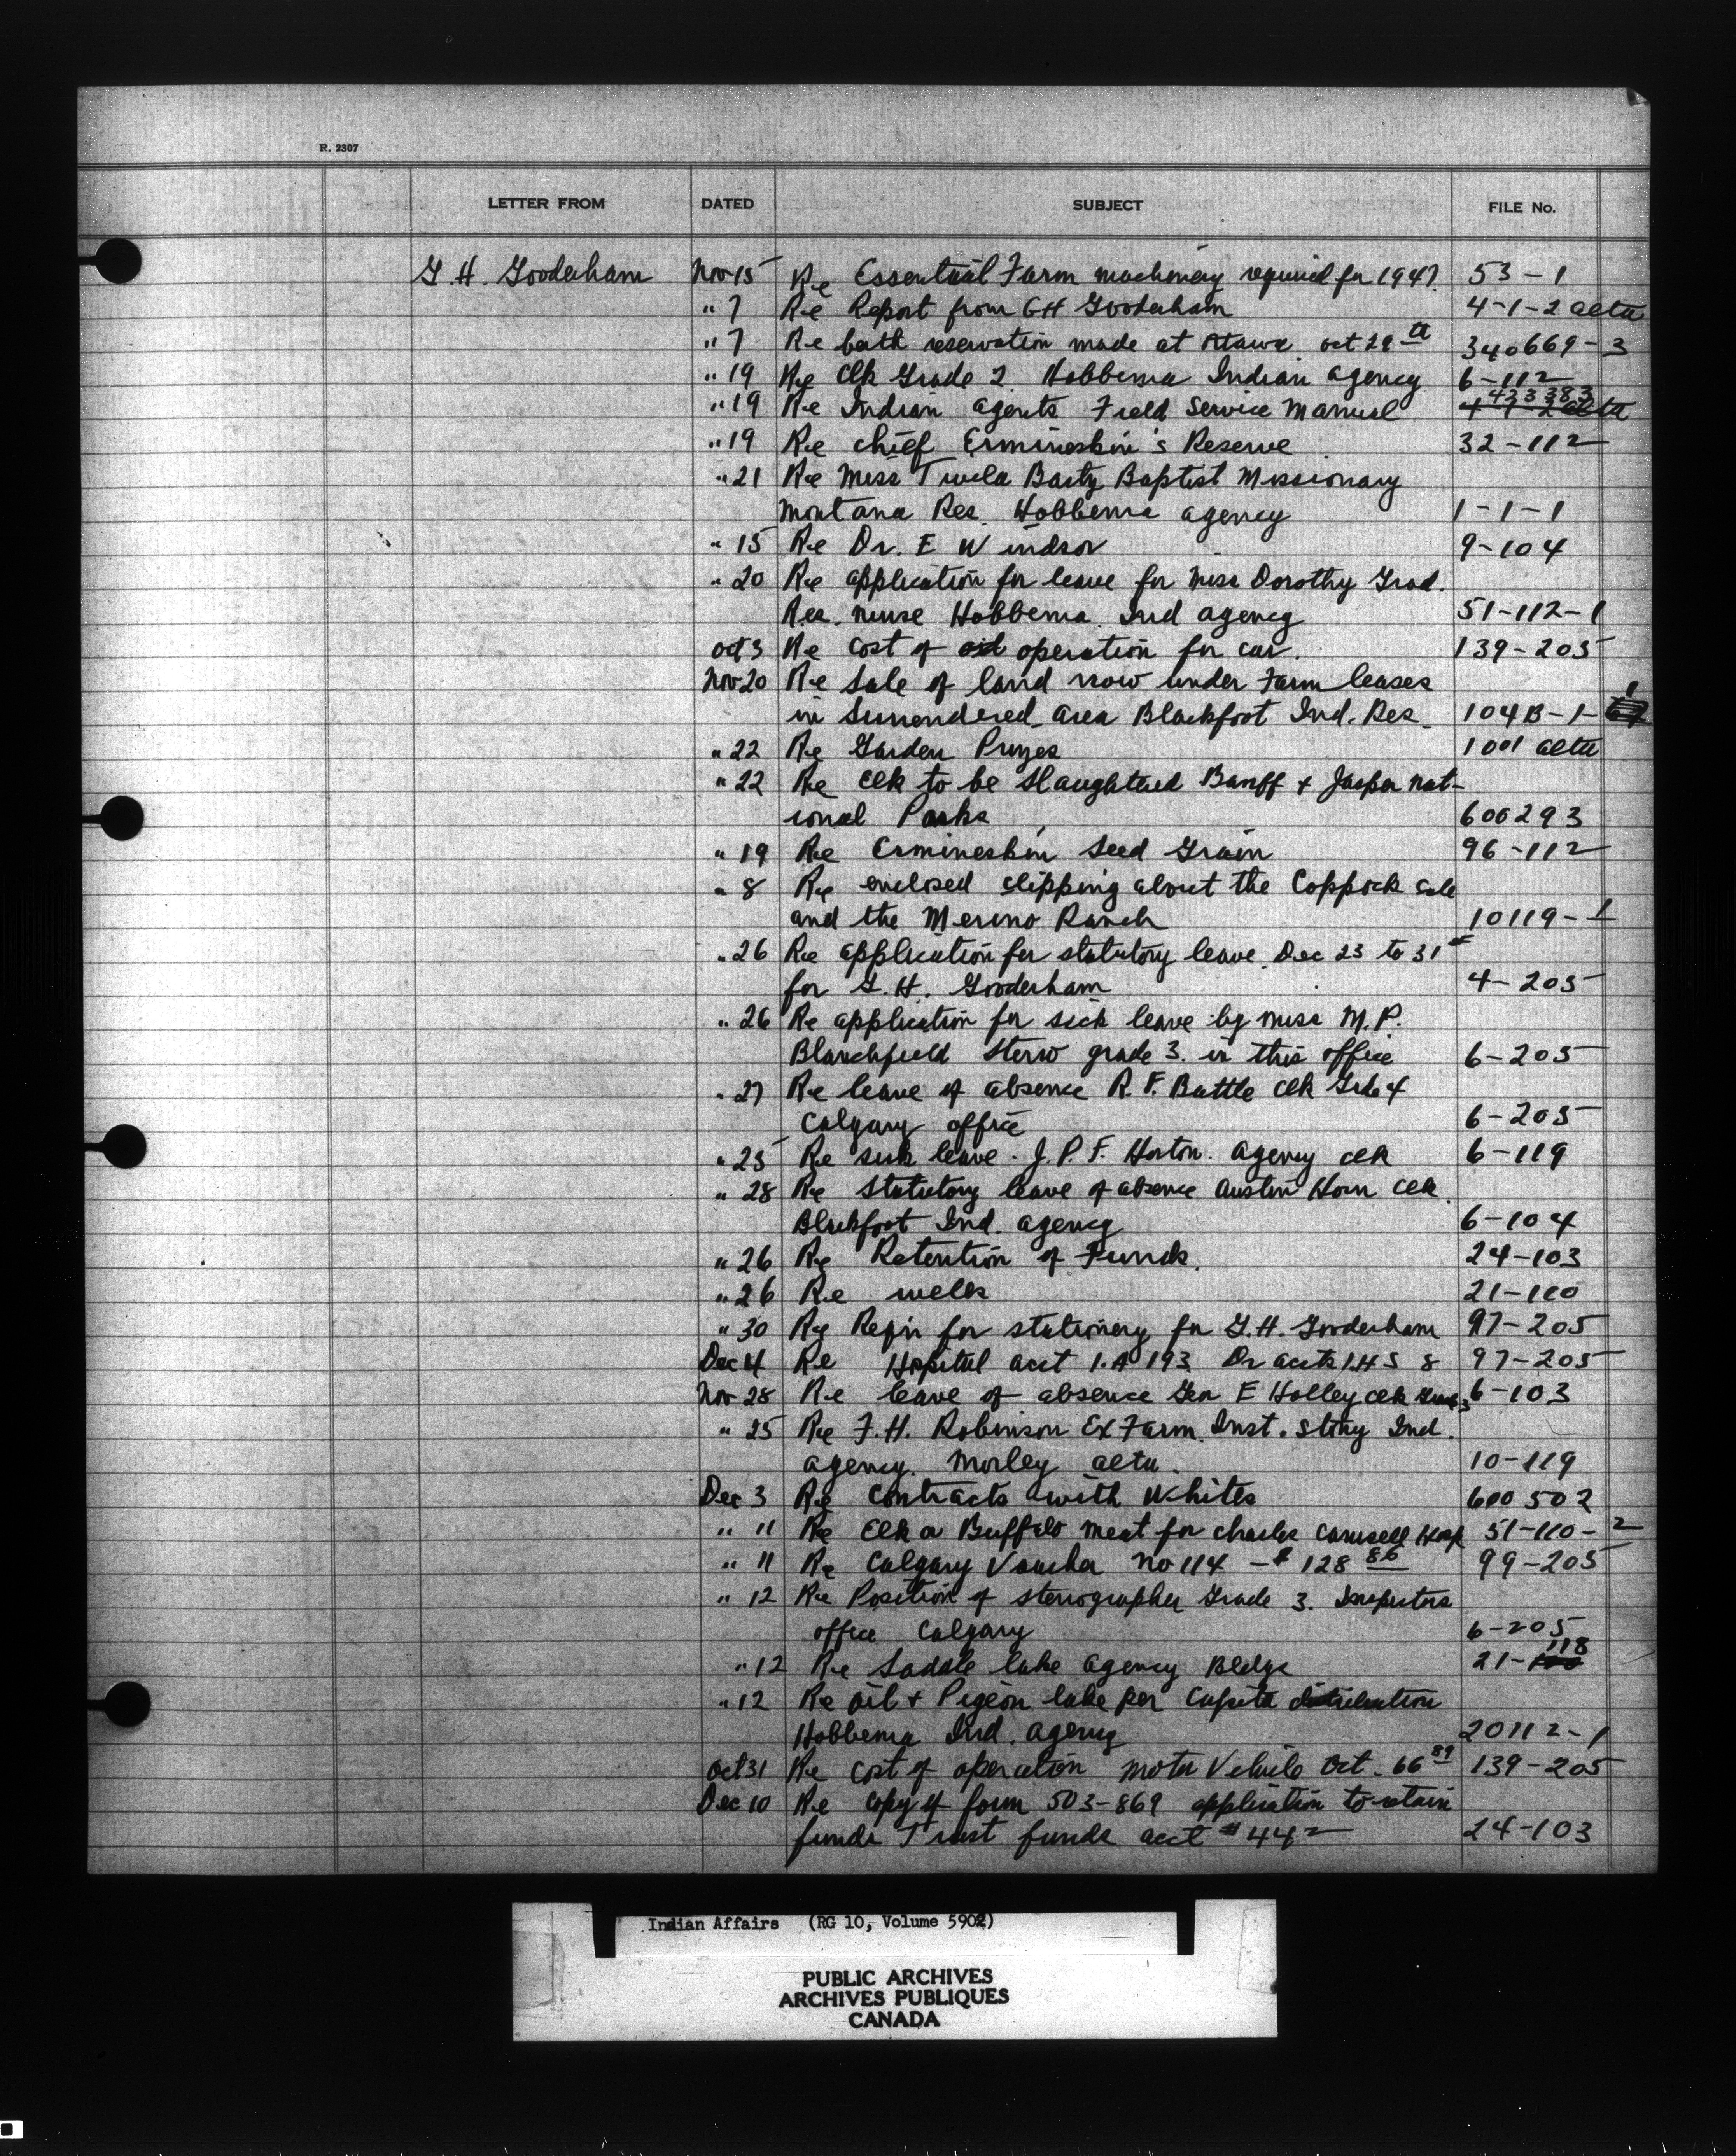 R. 2307
LETTER FROM DATED SUBJECT FILE No.
G. H. Gooderham Nov 15 Re Essential Farm machinery required for 1947. 53-1
" 7 Re Report from GH Gooderham 4-1-2 alta
" 7 Re berth reservation made at Ottawa oct 29th 340669-3
" 19 Re Clk Grade 2. Hobbema Indian agency 6-112
" 19 Re Indian agents Field Service Manual 423383
" 19 Re chief Ermineskin's Reserve 32-112
" 21 Re Miss Twila Baptist Missionary
Montana Res. Hobbema agency 1-1-1
" 15 Re Dr. E Windsor 9-104
" 20 Re application for leave for Miss Dorothy Grad.
Res. nurse Hobbema. Ind agency 51-112-1
oct 3 Re cost of operation for car. 139-205
Nov 20 Re Sale of land now under Farm leases
in Surrendered area Blackfoot Ind. Res. 104B-1-1
" 22 Re Garden Prizes 1001 alta
" 22 Re elk to be slaughtered Banff + Jasper nat-
ional Parks 600293
" 19 Re Ermineskin Seed Grain 96-112
" 8 Re enclosed clipping about the Coppock sale
and the Merino Ranch 10119-1
" 26 Re application for statutory leave Dec 23 to 31st
for G. H. Gooderham 4-205
" 26 Re application for sick leave by miss M. P.
Blanchfield Steno grade 3. in this office 6-205
" 27 Re leave of absence R. F. Battle clk Grde 4
Calgary office 6-205
" 25 Re sick leave. J. P. F. Horton. agency clk 6-119
" 28 Re Statutory leave of absence Austin Horn clk.
Blackfoot Ind. agency 6-104
" 26 Re Retention of Funds. 24-103
" 26 Re wells 21-110
" 30 Re Reqn for stationery for G. H. Gooderham 97-205
Dec 4 Re Hospital acct I.A 193 Dr accts I.H S 8 97-205
Nov 28 Re leave of absence Geo E Holley clk 6-103
" 25 Re F. H. Robinson Ex Farm. Inst. Stony Ind.
agency. Morley alta. 10-119
Dec 3 Re contracts with Whites 600502
" 11 Re Elk or Buffalo meat for Charles Camsell Hosp 51-110-2
" 11 Re Calgary Voucher no 114 - $ 128 86 99-205
" 12 Re Position of stenographer Grade 3. Inspectors
office Calgary 6-205
" 12 Re Saddle lake agency Bldgs 21-118
" 12 Re oil + Pigeon lake per Capita distribution
Hobbema Ind. agency 20112-1
oct 31 Re cost of operation motor Vehicle Oct. 66 89 139-205
Dec 10 Re copy of form 503-869 application to retain
funds Trust funds acct #442 24-103
Indian Affairs (RG 10, Volume 5902)
PUBLIC ARCHIVES
ARCHIVES PUBLIQUES
CANADA